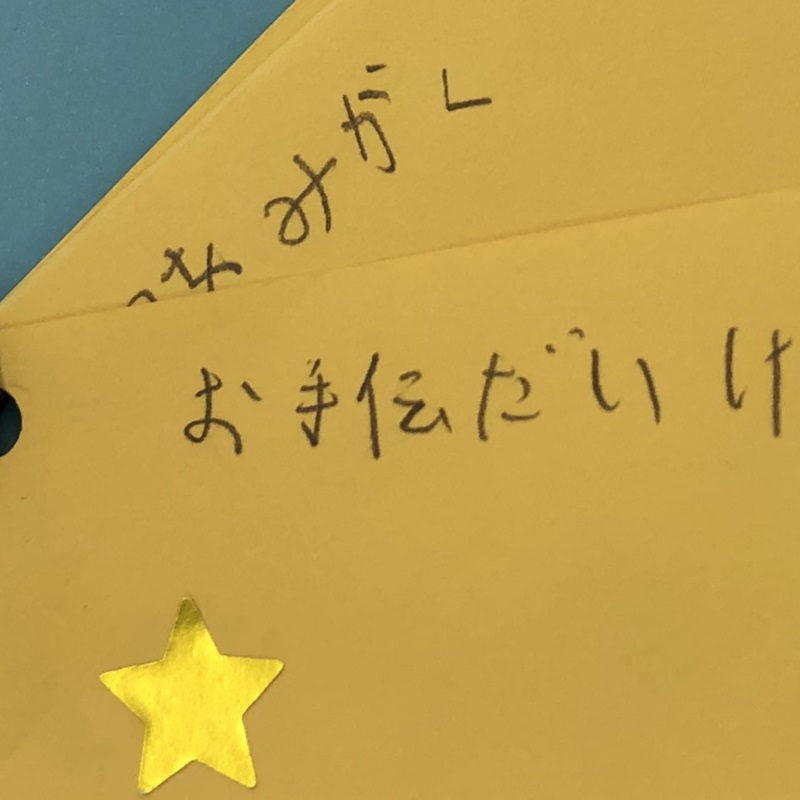 みがく
お手伝だい け